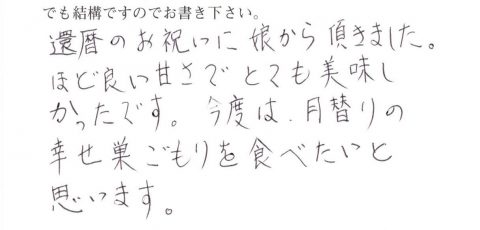 でも結構ですのでお書き下さい。
還暦のお祝いに娘から頂きました。
ほど良い甘さでとても美味し
かったです。今度は、月替りの
幸せ巣ごもりを食べたいと
思います。